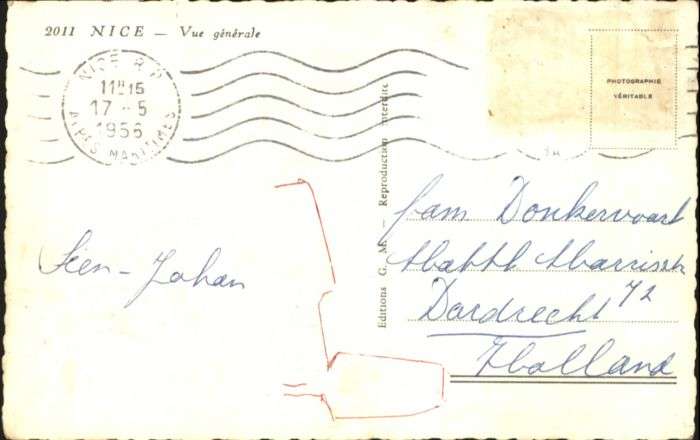 2011 NICE — Vue générale
NICE R.P.
11H15
17-5
1956
ALPES-MARITIMES
PHOTOGRAPHIE
VÉRITABLE
Editions G. M. - Reproduction interdite
Sien - Johan
fam Donkervoort
72
Dordrecht
Holland